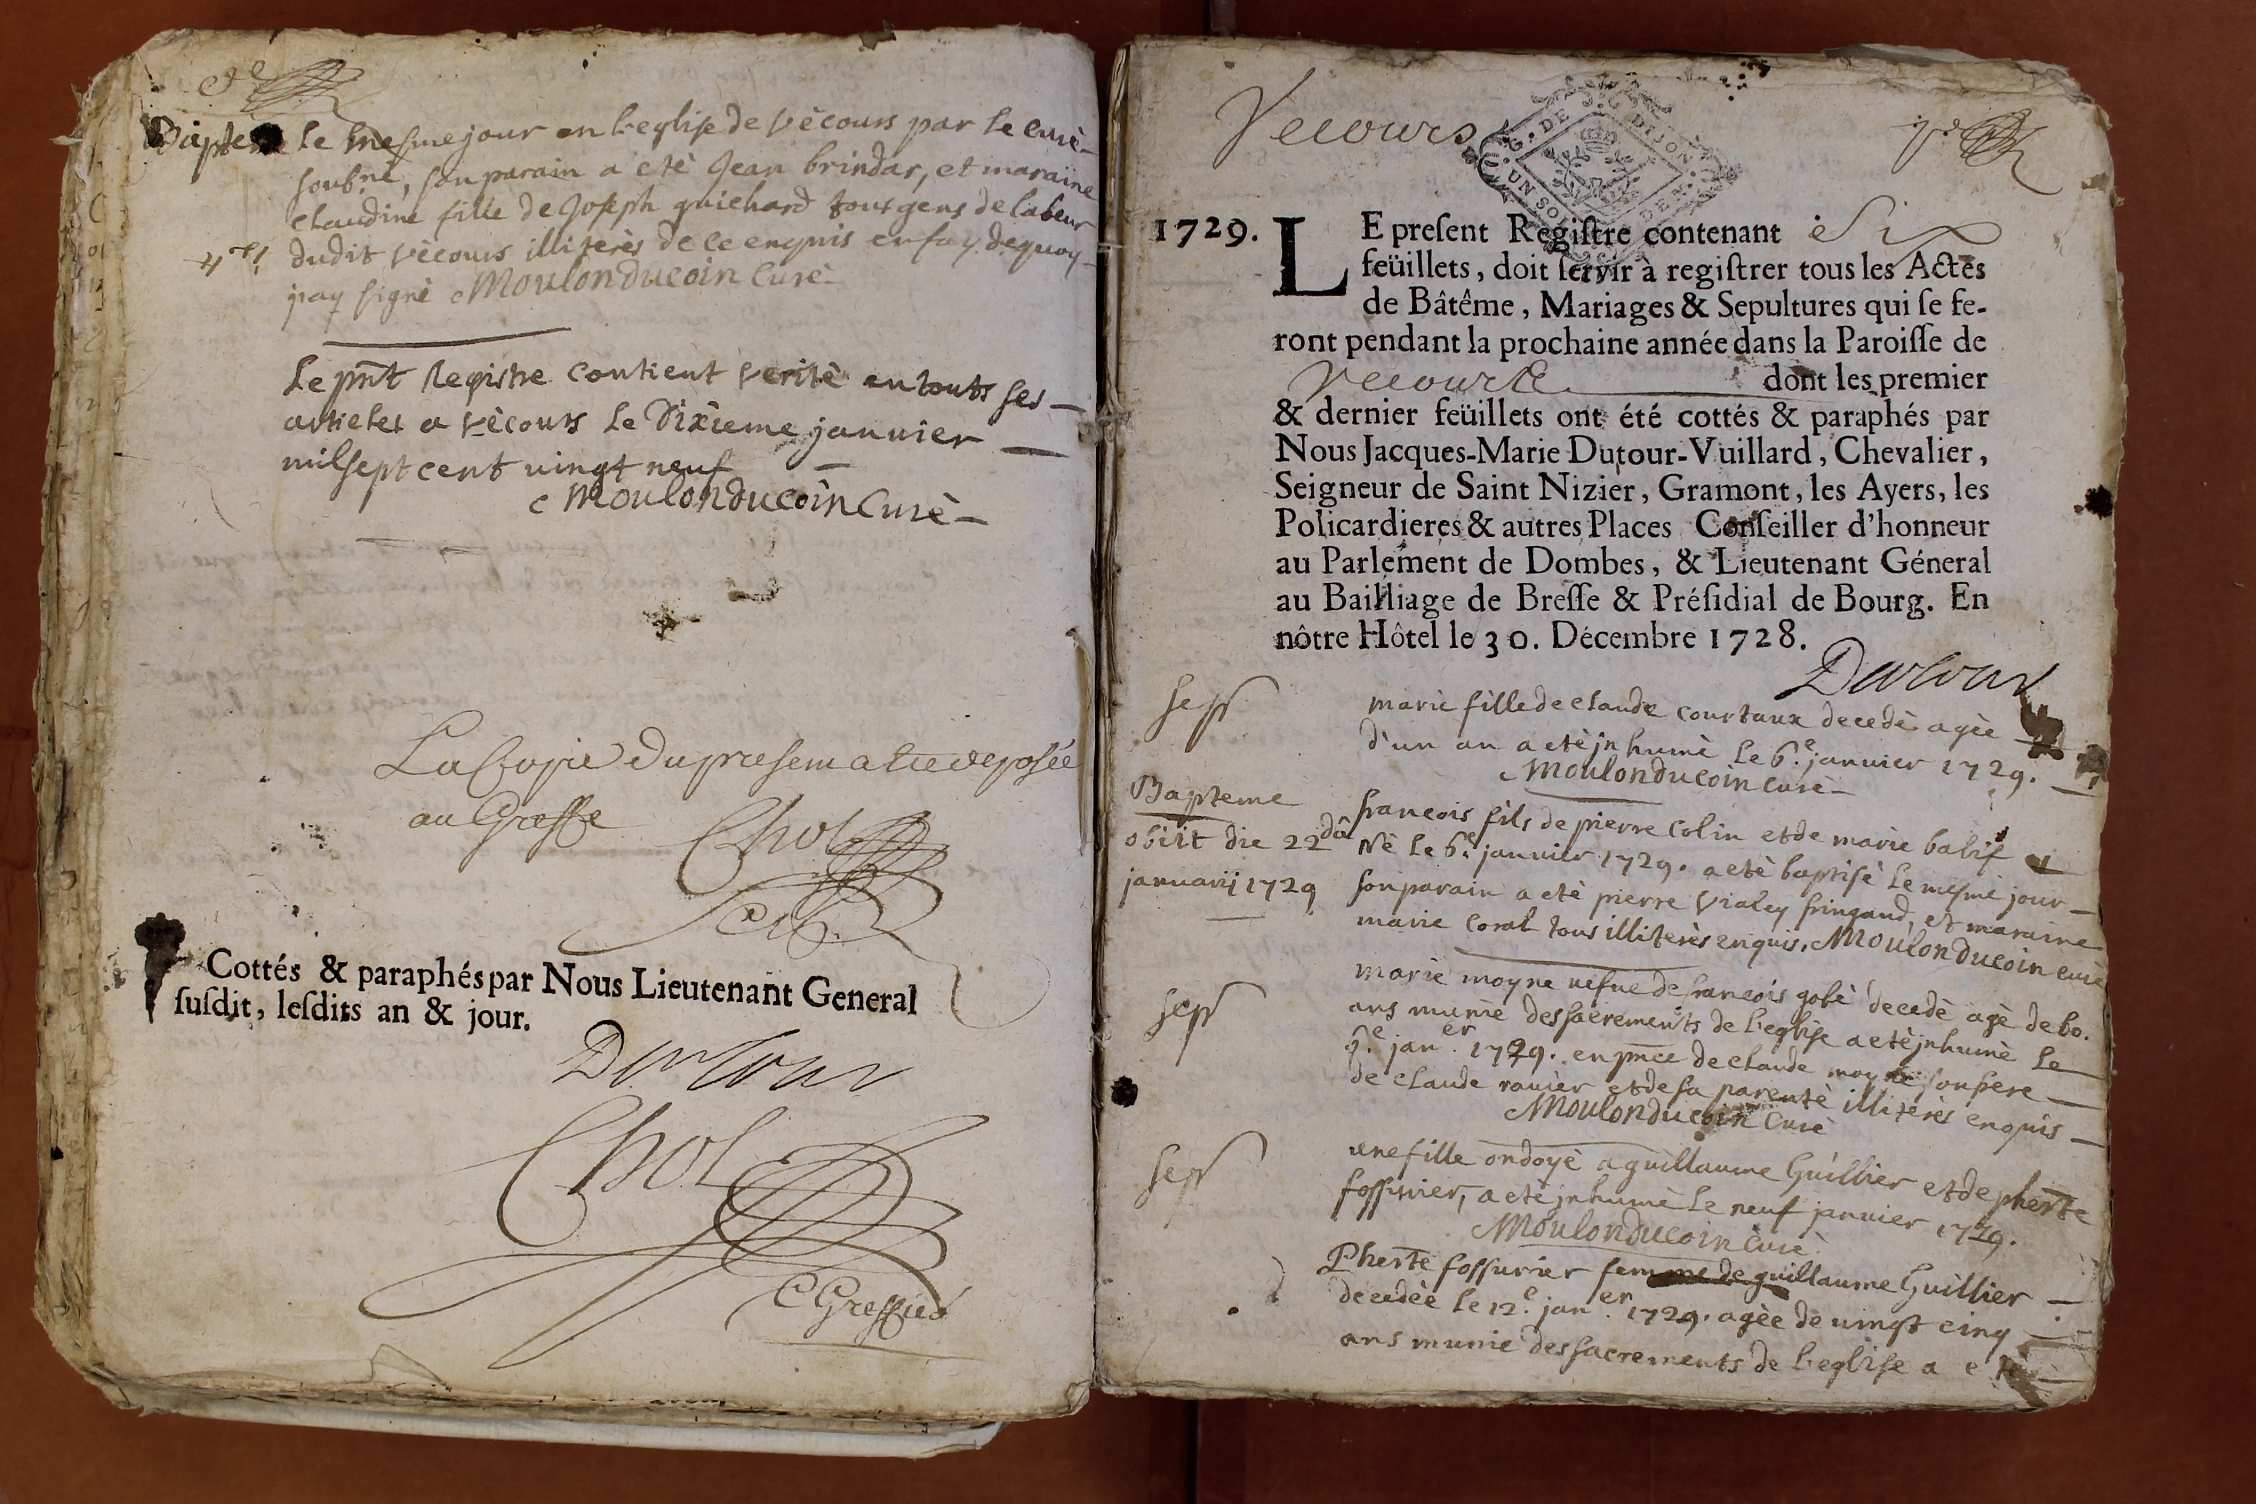 Bapteme le mesme jour en l'eglise de vècours par le curè
soubnè, son parain a etè Jean brindar, et maraine
claudine fille de Joseph guichard tous gens de labeur
dudit vècours illiterès de ce enquis en foy de quoy
jay signè Moulonducoin Curè
Le pnt Registre contient veritè en touts ses
articles a vècours le Dixieme janvier
mil sept cent vingt neuf
Moulonducoin Curè
La Copie du present a été deposée
au Greffe Chol
Cottés & paraphés par Nous Lieutenant General
ſuſdit, leſdits an & jour.
Dutour
Chol
Greffier
Vecours
G. DE DIJON
UN SOL DER.
1729. LE preſent Regiſtre contenant Six
feüillets, doit ſervir à regiſtrer tous les Actes
de Bâtême, Mariages & Sepultures qui ſe fe-
ront pendant la prochaine année dans la Paroiſſe de
Vecours dont les premier
& dernier feüillets ont été cottés & paraphés par
Nous Jacques-Marie Dutour-Vuillard, Chevalier,
Seigneur de Saint Nizier, Gramont, les Ayers, les
Policardieres & autres Places Conſeiller d'honneur
au Parlement de Dombes, & Lieutenant Géneral
au Bailliage de Breſſe & Préſidial de Bourg. En
nôtre Hôtel le 30. Décembre 1728.
Dutour
sepr
marie fille de claude courtaux decedè agèe
d'un an a etè jnhumè le 6.e janvier 1729.
Moulonducoin curè
Bapteme
obiit die 22da
januarij 1729
francois fils de pierre Colin et de marie balif
Nè le 6.e janvier 1729. a etè baptisè le mesme jour
son parain a etè pierre vialey fringand, et maraine
marie coral tous illiterès enquis, Moulonducoin curè
sepr
marie moyne vefue de francois gobè decedè agè de 60.
ans munie des sacrements de l'eglise a etè jnhumè le
9.e jan.er 1729. en pnce de claude moyne son pere
de claude ravier et de sa parentè illiterès enquis
Moulonducoin Curè
sepr
une fille ondoyè a guillaume Guillier et de pherte
fossurier, a etè jnhumè le neuf janvier 1729.
Moulonducoin Curè
Pherte fossurier femme de guillaume Guillier
decedèe le 12.e jan.er 1729. agèe de vingt cinq
ans munie des sacrements de l'eglise a etè